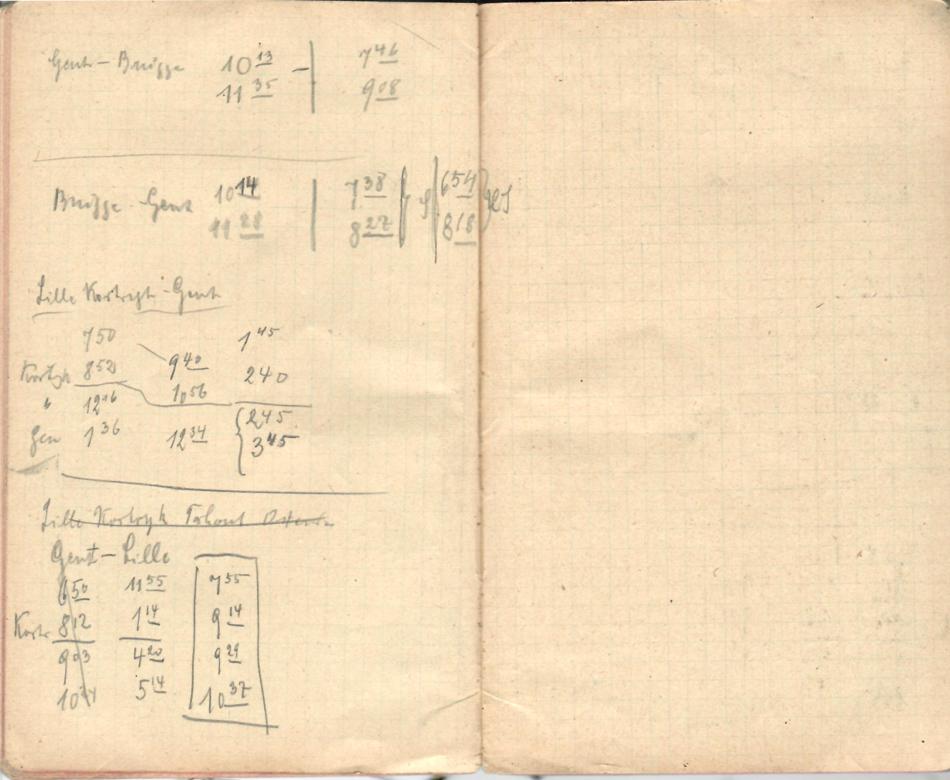 Gent - Brügge 10 13 - 7 46
11 35 9 08
Brügge - Gent 10 14 7 38 6 54
11 28 8 27 8 18
Lille Kortryk - Gent
7 50 1 45
Kortryk 8 52 9 40 2 40
" 12 16 10 56 2 45
Gen 1 36 12 34 3 45
Lille Kortryk
Gent - Lille
6 50 11 55 7 55
Kortr 8 12 1 14 9 14
9 03 4 20 9 29
10 5 14 10 37